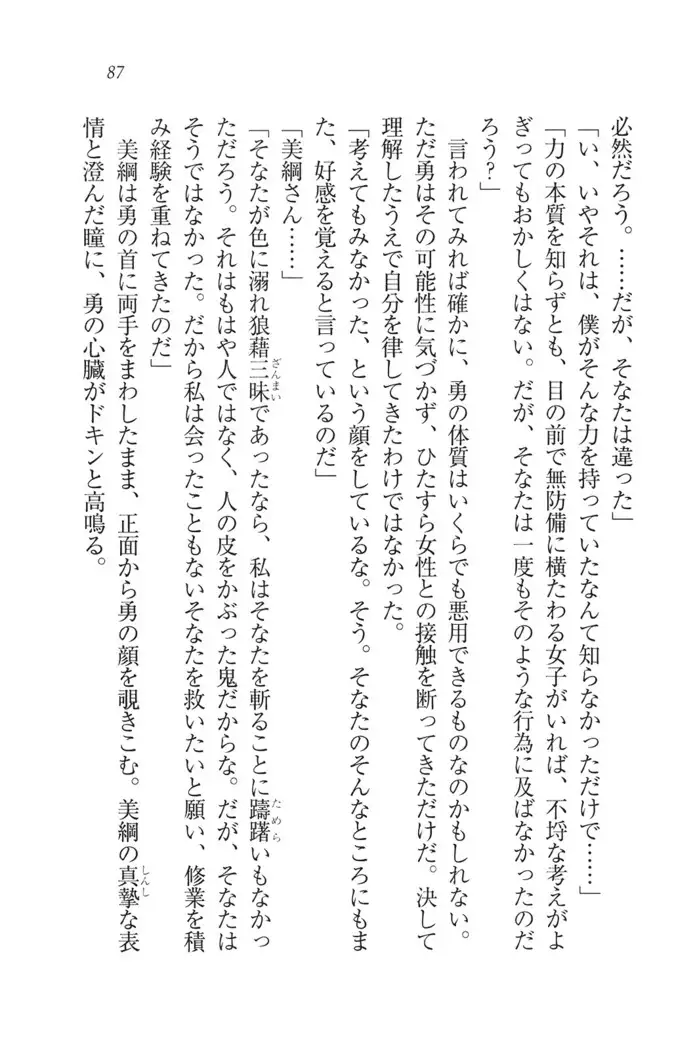 87
必然だろう。……だが、そなたは違った」
「い、いやそれは、僕がそんな力を持っていたなんて知らなかっただけで……」
「力の本質を知らずとも、目の前で無防備に横たわる女子がいれば、不埒な考えがよ
ぎってもおかしくはない。だが、そなたは一度もそのような行為に及ばなかったのだ
ろう？」
言われてみれば確かに、勇の体質はいくらでも悪用できるものなのかもしれない。
ただ勇はその可能性に気づかず、ひたすら女性との接触を断ってきただけだ。決して
理解したうえで自分を律してきたわけではなかった。
「考えてもみなかった、という顔をしているな。そう。そなたのそんなところにもま
た、好感を覚えると言っているのだ」
「美綱さん……」
「そなたが色に溺れ狼藉三昧であったなら、私はそなたを斬ることに躊躇いもなかっ
ただろう。それはもはや人ではなく、人の皮をかぶった鬼だからな。だが、そなたは
そうではなかった。だから私は会ったこともないそなたを救いたいと願い、修業を積
み経験を重ねてきたのだ」
美綱は勇の首に両手をまわしたまま、正面から勇の顔を覗きこむ。美綱の真摯な表
情と澄んだ瞳に、勇の心臓がドキンと高鳴る。